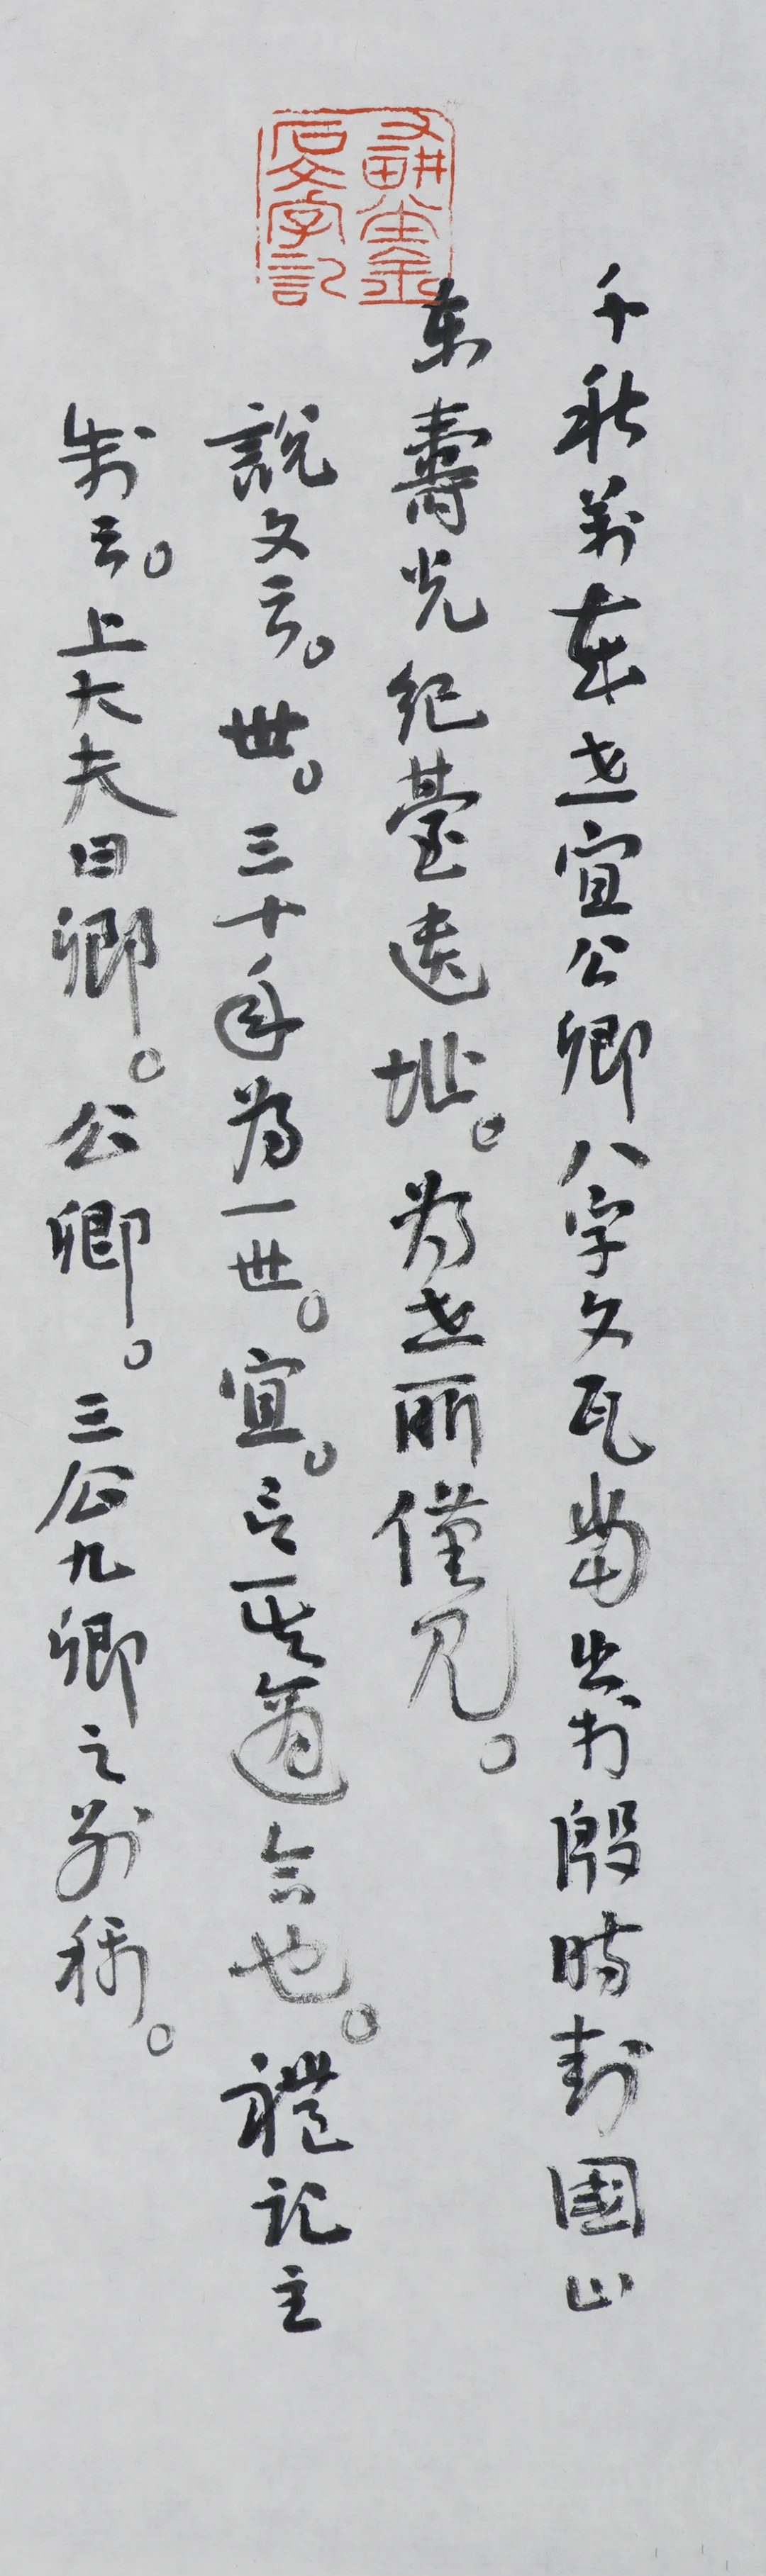 又畊堂金石文字記
千秋萬歲世宜公卿八字文瓦當出於殷時封國山
東壽光紀臺遺址。為世所僅見。
說文云。世。三十年為一世。宜。言其適合也。禮記王
制云。上大夫曰卿。公卿。三公九卿之別稱。